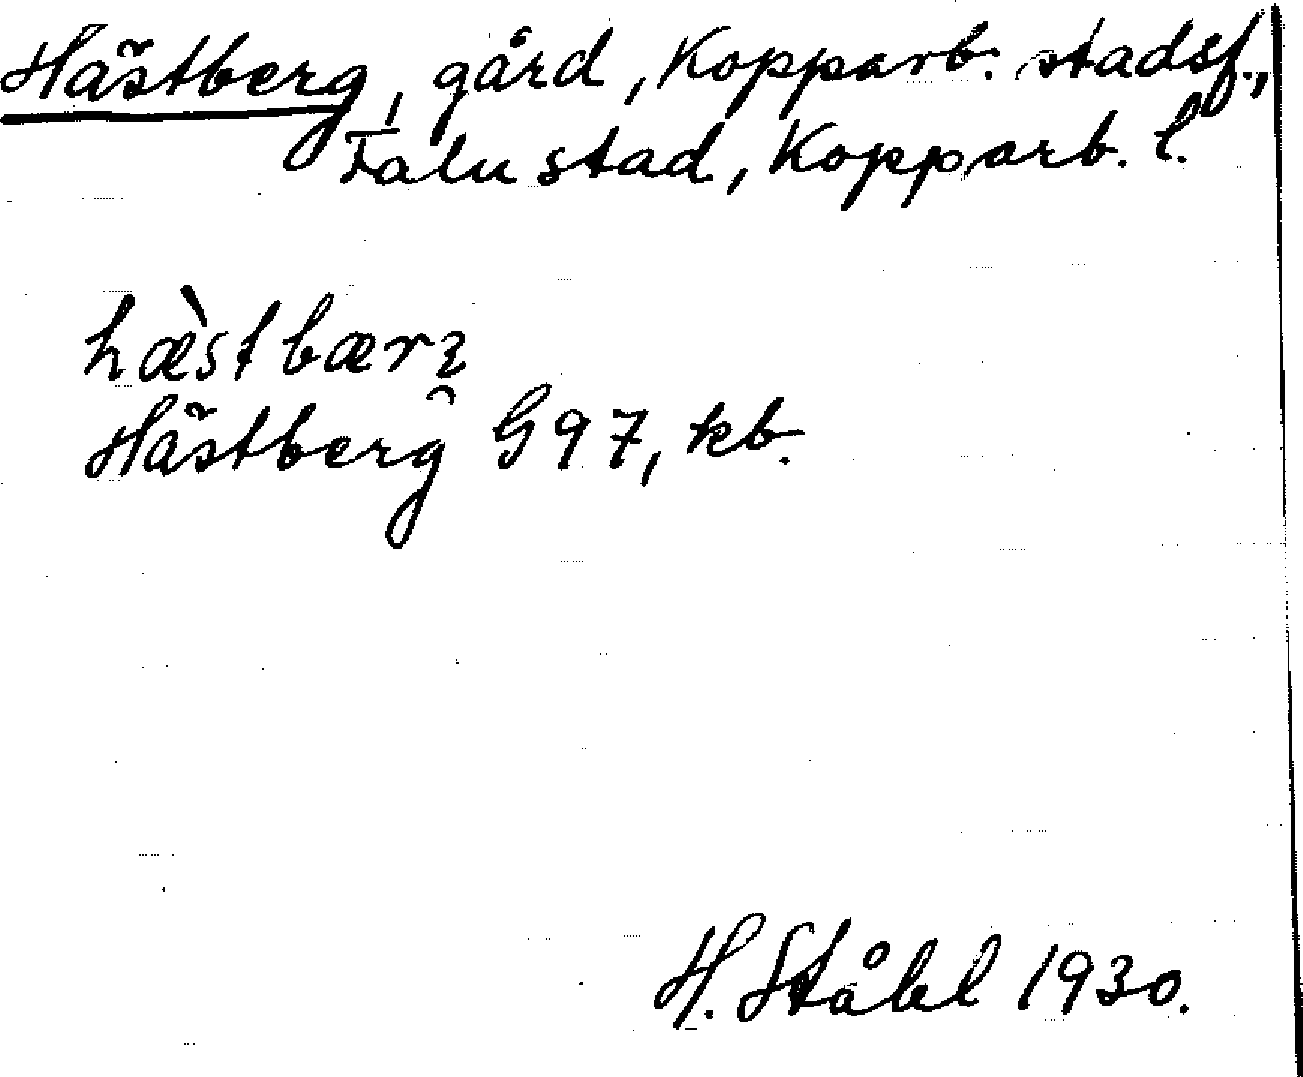 Hästberg, gård, Kopparb. stadsf.,
Falu stad, Kopparb. l.
hæ̀stbærȷ̨
Hästberg G97, kb.
H. Ståhl 1930.